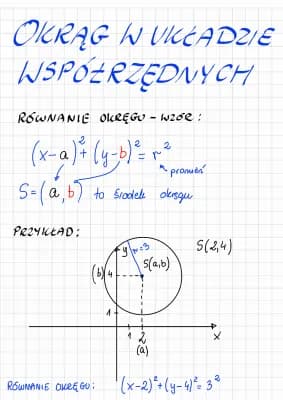 OKRĄG W UKŁADZIE
WSPÓŁRZĘDNYCH
RÓWNANIE OKRĘGU - WZÓR:
(x-a)²+(y-b)²=r²
promień
S=(a,b) to środek okręgu
PRZYKŁAD:
y r=3 S(2,4)
S(a,b)
(b) 4
1
1 2 x
(a)
RÓWNANIE OKRĘGU: (x-2)²+(y-4)²=3²